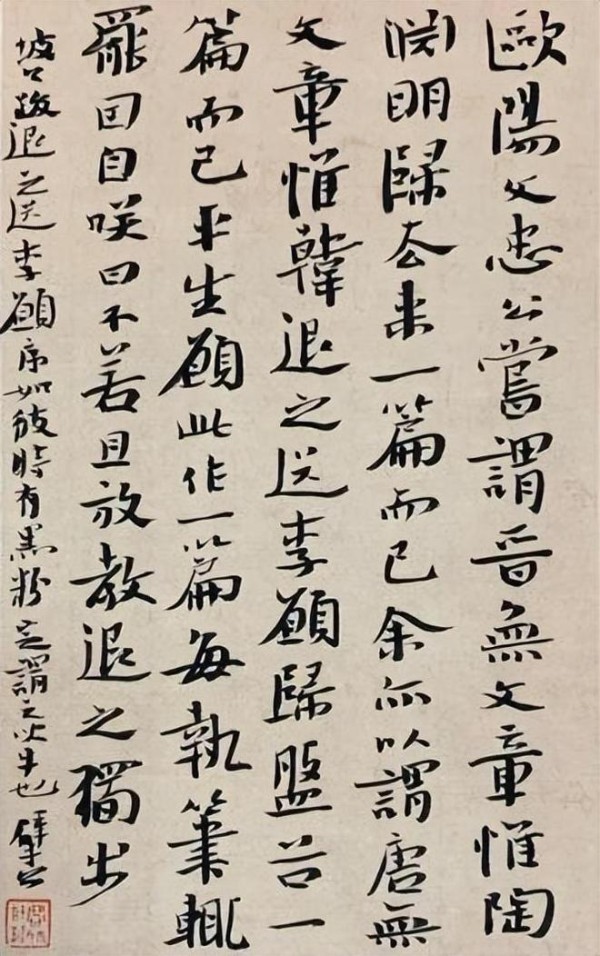 歐陽文忠公嘗謂晉無文章惟陶
渕明歸去來一篇而已余亦以謂唐無
文章惟韓退之送李願歸盤谷一
篇而已平生願此作一篇每執筆輒
罷囙自咲曰不若且放教退之獨步
坡公跋退之送李願序如彼時有黑粉定謂之吹牛也